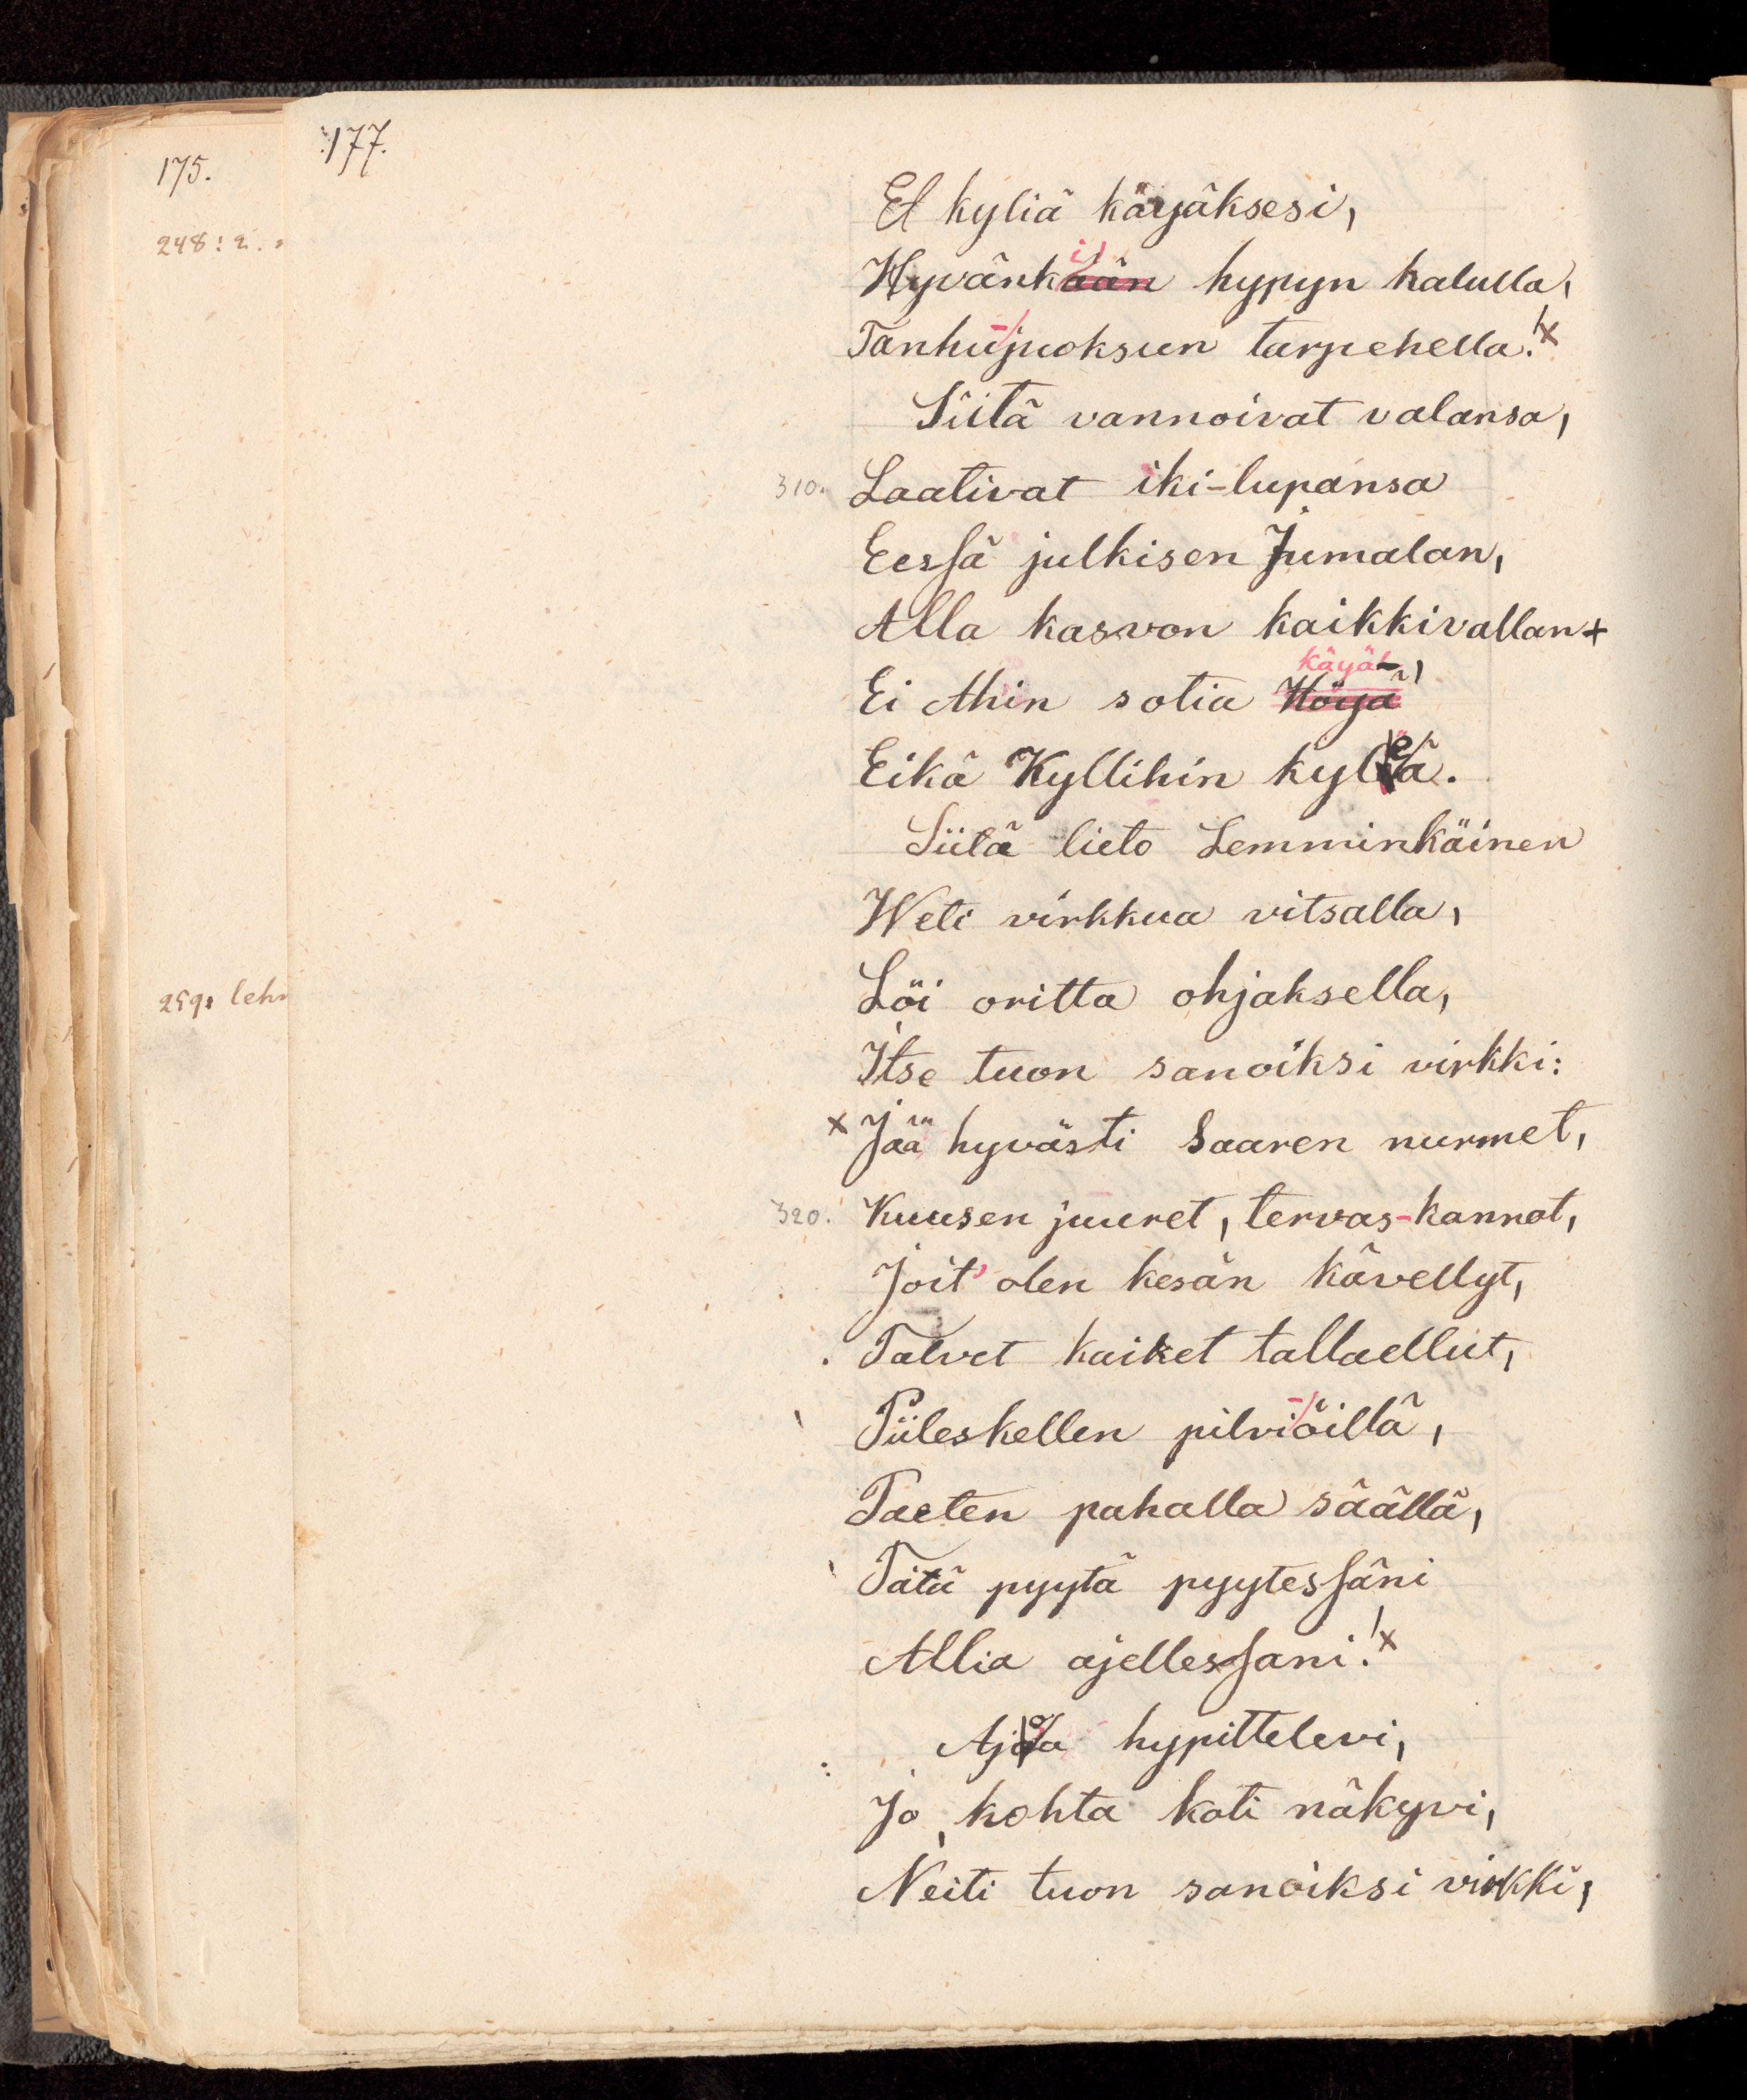 177.
175.
248: 2.
259: lehn
Et kyliä käyäksesi,
Hyvänkään hypyn halulla,
Tanhujuoksun tarpehella!
Siitä vannoivat valansa,
310. Laativat iki-lupansa
Eessä julkisen Jumalan,
Alla kasvon kaikkivallan
käyä
Ei Ahin sotia
Eikä Kyllihin kyleä.
Siitä lieto Lemminkäinen
Weti virkkua vitsalla,
Löi oritta ohjaksella,
Itse tuon sanoiksi virkki:
x Jää hyvästi Saaren nurmet,
320. Kuusen juuret, tervas-kannot,
Joit' olen kesän kävellyt,
Talvet kaiket tallaellut,
Piileskellen pilvi-öillä,
Paeten pahalla säällä,
Tätä pyytä pyytessäni
Allia ajellessani! x
Ajoa hypittelevi,
Jo kohta koti näkyvi,
Neiti tuon sanoiksi virkki,